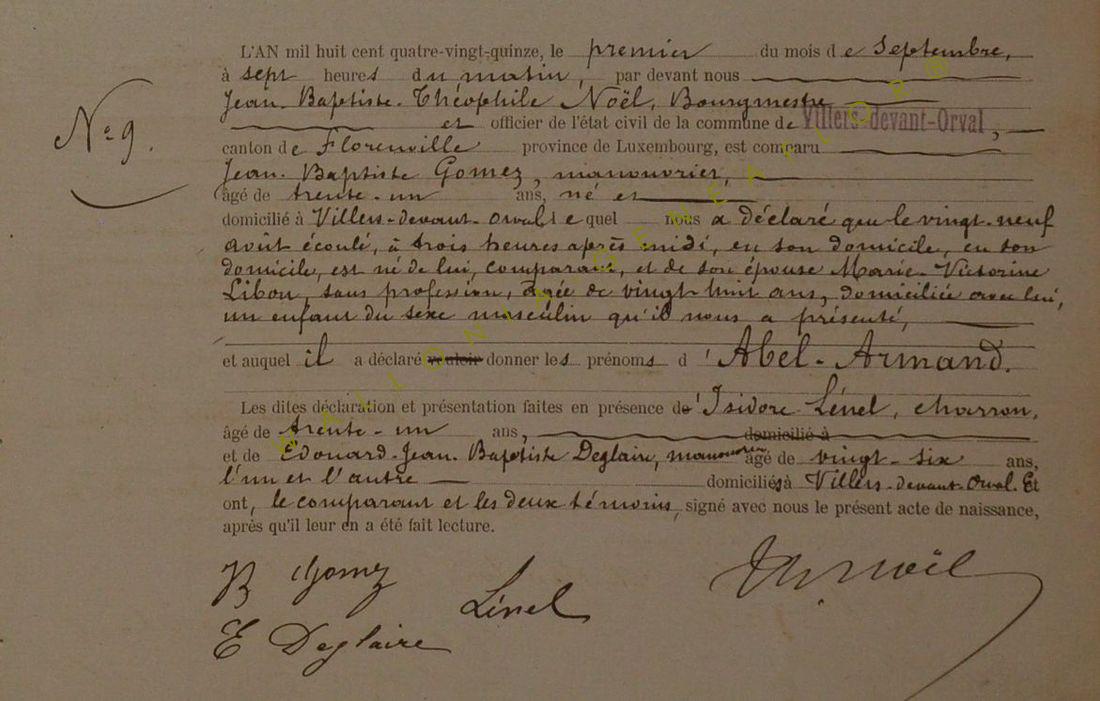 L'AN mil huit cent quatre-vingt-quinze, le premier du mois de Septembre,
à sept heures du matin, par devant nous
Jean-Baptiste-Théophile Noël, Bourgmestre
et officier de l'état civil de la commune de Villers-devant-Orval,
canton de Florenville province de Luxembourg, est comparu
Jean-Baptiste Gomez, manouvrier,
âgé de trente-un ans, né et
domicilié à Villers-devant-Orval lequel nous a déclaré que le vingt-neuf
août écoulé, à trois heures après midi, en son domicile, en son
domicile, est né de lui, comparant, et de son épouse Marie-Victorine
Libon, sans profession, âgée de vingt-huit ans, domiciliée avec lui,
un enfant du sexe masculin qu'il nous a présenté,
et auquel il a déclaré vouloir donner les prénoms d'Abel-Armand.
Nº 9.
Les dites déclaration et présentation faites en présence d'Isidore Lénel, charron,
âgé de trente-un ans, domicilié à
et de Edouard-Jean-Baptiste Deglaire, manouvrier âgé de vingt-six ans,
l'un et l'autre domiciliés à Villers-devant-Orval. Et
ont, le comparant et les deux témoins, signé avec nous le présent acte de naissance,
après qu'il leur en a été fait lecture.
JB Gomez
Lénel
E Deglaire
WALLONIA GENEALOR®